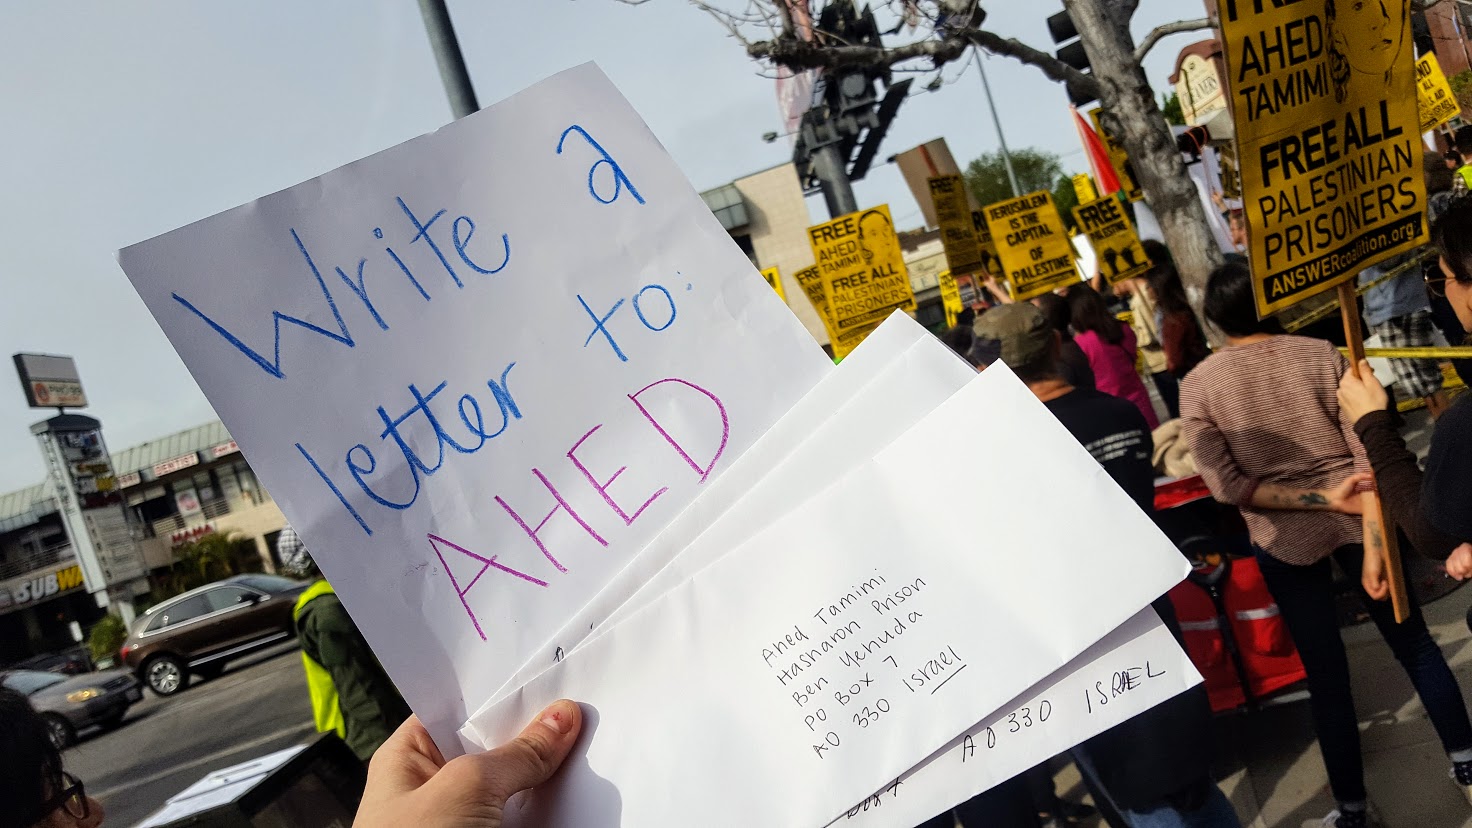 Write a
letter to:
AHED
Ahed Tamimi
Hasharon Prison
Ben Yehuda
PO BOX 7
AO 330 Israel
AO 330 ISRAEL
FREE
AHED
TAMIMI
FREE ALL
PALESTINIAN
PRISONERS
ANSWERcoalition.org
FREE
AHED
TAMIMI
FREE ALL
PALESTINIAN
PRISONERS
JERUSALEM
IS THE
CAPITAL
OF
PALESTINE
FREE
PALESTINE
DENTIST
MAMA
SUBWAY